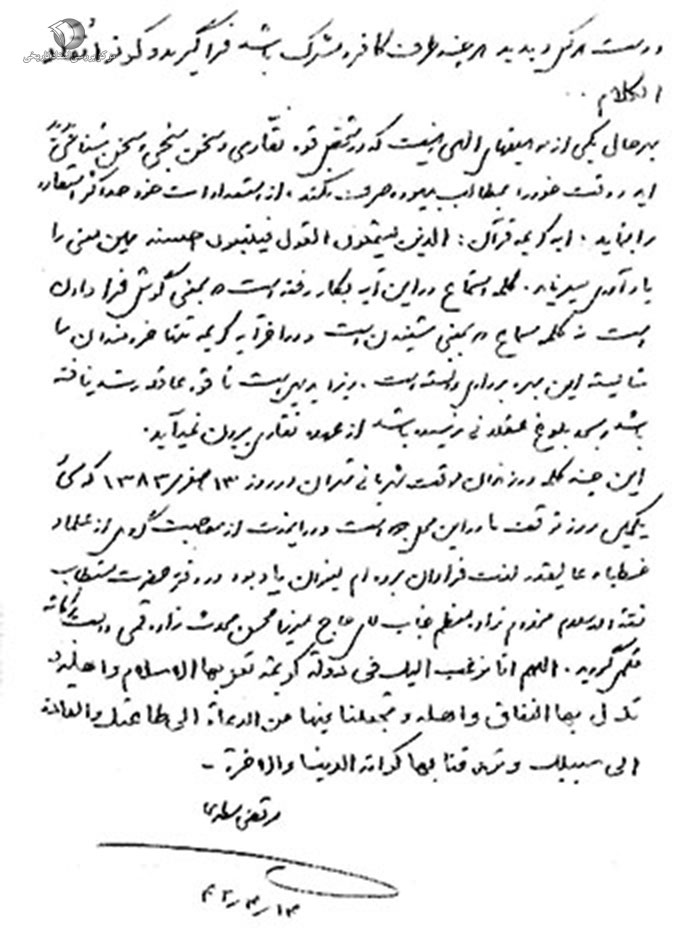 مرکز بررسی اسناد تاریخی
در دست هر کس دیدید هر چند طرف کافر و مشرک باشد فرا گیرید و کونوا نقاد
الکلام ..
بهر حال یکی از موهبتهای الهی اینست که در شخص قوه نقادی و سخن سنجی و سخن شناسی
وقت خود را بمطالب بیهوده صرف نکند، از استعداد است خود حداکثر استفاده
را بنماید. آیه کریمه قرآن: الذین یستمعون القول فیتبعون احسنه همین معنی را
یادآوری مینماید. کلمه استماع در این آیه بکار رفته است که بمعنی گوش فرا دادن
است نه کلمه سماع که بمعنی شنیدن است و در آخر آیه کریمه تنها خردمندان را
شایسته این بهره برداری دانسته است. زیرا بدیهی است تا قوه عاقله رشد یافته
باشد و بحد بلوغ عقلانی نرسیده باشد از عهده نقادی بیرون نمیآید.
این چند کلمه در زندان موقت شهربانی تهران در روز ۱۳ صفر ۱۳۸۳ که سی
یکمین روز توقف ما در این محل است و در این مدت از مصاحبت گروهی از علماء و
خطباء عالیقدر لذت فراوان برده ام بعنوان یادبود در دفتر حضرت مستطاب
ثقة الاسلام مخدوم زاده معظم جناب آقای حاج میرزا محسن محدث زاده قمی دامت برکاته
قلمی گردید. اللهم انا نرغب الیک فی دولة کریمة تعز بها الاسلام و اهله و
تذل بها النفاق و اهله و تجعلنا فیها من الدعاة الی طاعتک والقادة
الی سبیلک و ترزقنا بها کرامة الدنیا والاخرة -
مرتضی مطهری
۱۴ ر ۴ ر ۴۲